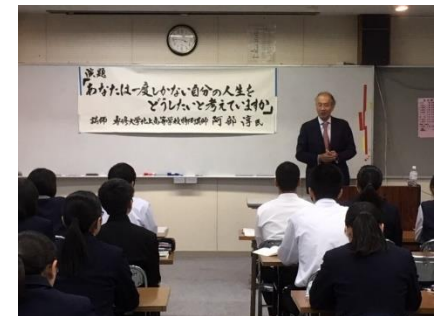 演題
「あなたは一度しかない自分の人生を
どうしたいと考えていますか」
講師 専修大学北上高等学校特任講師 阿部 淳 氏